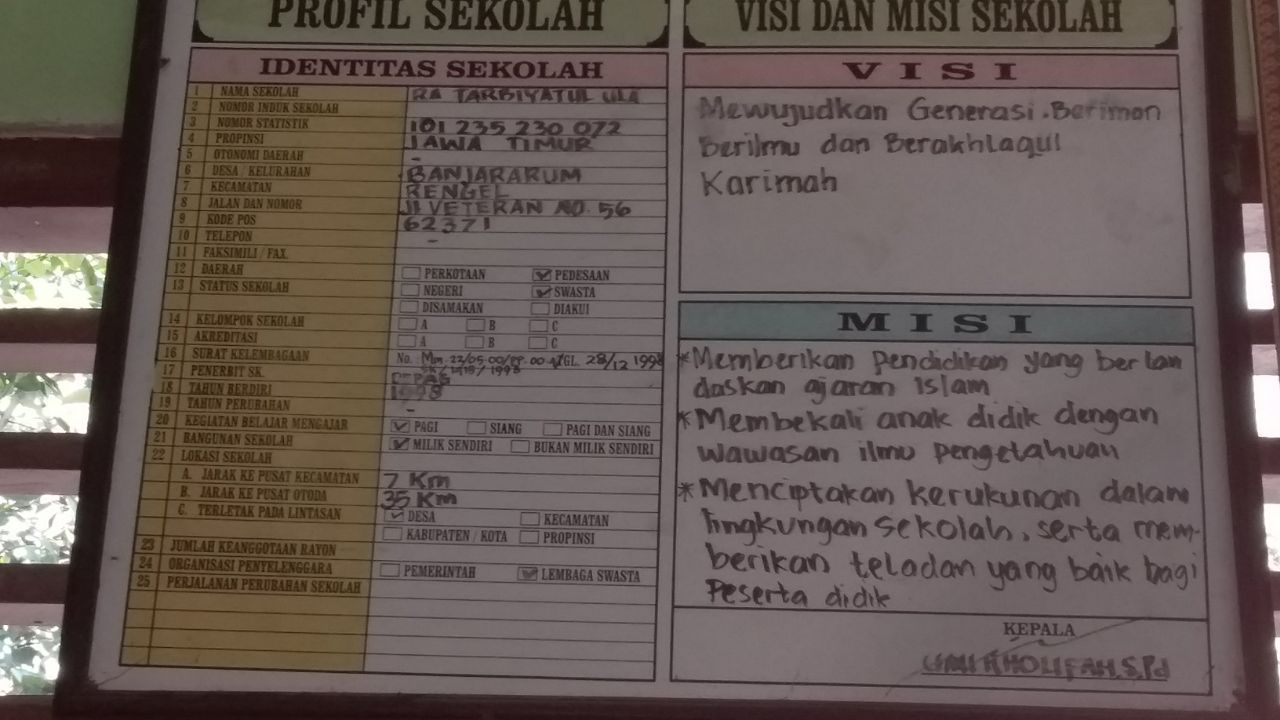 PROFIL SEKOLAH
IDENTITAS SEKOLAH
1 NAMA SEKOLAH RA TARBIYATUL ULA
2 NOMOR INDUK SEKOLAH
3 NOMOR STATISTIK 101 235 230 072
4 PROPINSI JAWA TIMUR
5 OTONOMI DAERAH -
6 DESA / KELURAHAN BANJARARUM
7 KECAMATAN RENGEL
8 JALAN DAN NOMOR Jl VETERAN NO. 56
9 KODE POS 62371
10 TELEPON -
11 FAKSIMILI / FAX.
12 DAERAH PERKOTAAN PEDESAAN
13 STATUS SEKOLAH NEGERI SWASTA
DISAMAKAN DIAKUI
14 KELOMPOK SEKOLAH A B C
15 AKREDITASI A B C
16 SURAT KELEMBAGAAN No. : TGL. 28/12 1998
17 PENERBIT SK. DEPAG
18 TAHUN BERDIRI 1998
19 TAHUN PERUBAHAN -
20 KEGIATAN BELAJAR MENGAJAR PAGI SIANG PAGI DAN SIANG
21 BANGUNAN SEKOLAH MILIK SENDIRI BUKAN MILIK SENDIRI
22 LOKASI SEKOLAH
A. JARAK KE PUSAT KECAMATAN 7 Km
B. JARAK KE PUSAT OTODA 35 Km
C. TERLETAK PADA LINTASAN DESA KECAMATAN
KABUPATEN / KOTA PROPINSI
23 JUMLAH KEANGGOTAAN RAYON
24 ORGANISASI PENYELENGGARA PEMERINTAH LEMBAGA SWASTA
25 PERJALANAN PERUBAHAN SEKOLAH
VISI DAN MISI SEKOLAH
VISI
Mewujudkan Generasi Beriman
Berilmu dan Berakhlaqul
Karimah
MISI
*Memberikan pendidikan yang berlan
daskan ajaran Islam
*Membekali anak didik dengan
wawasan ilmu pengetahuan
*Menciptakan kerukunan dalam
lingkungan sekolah, serta mem-
berikan teladan yang baik bagi
Peserta didik
KEPALA
UMI KHOLIFAH, S.Pd